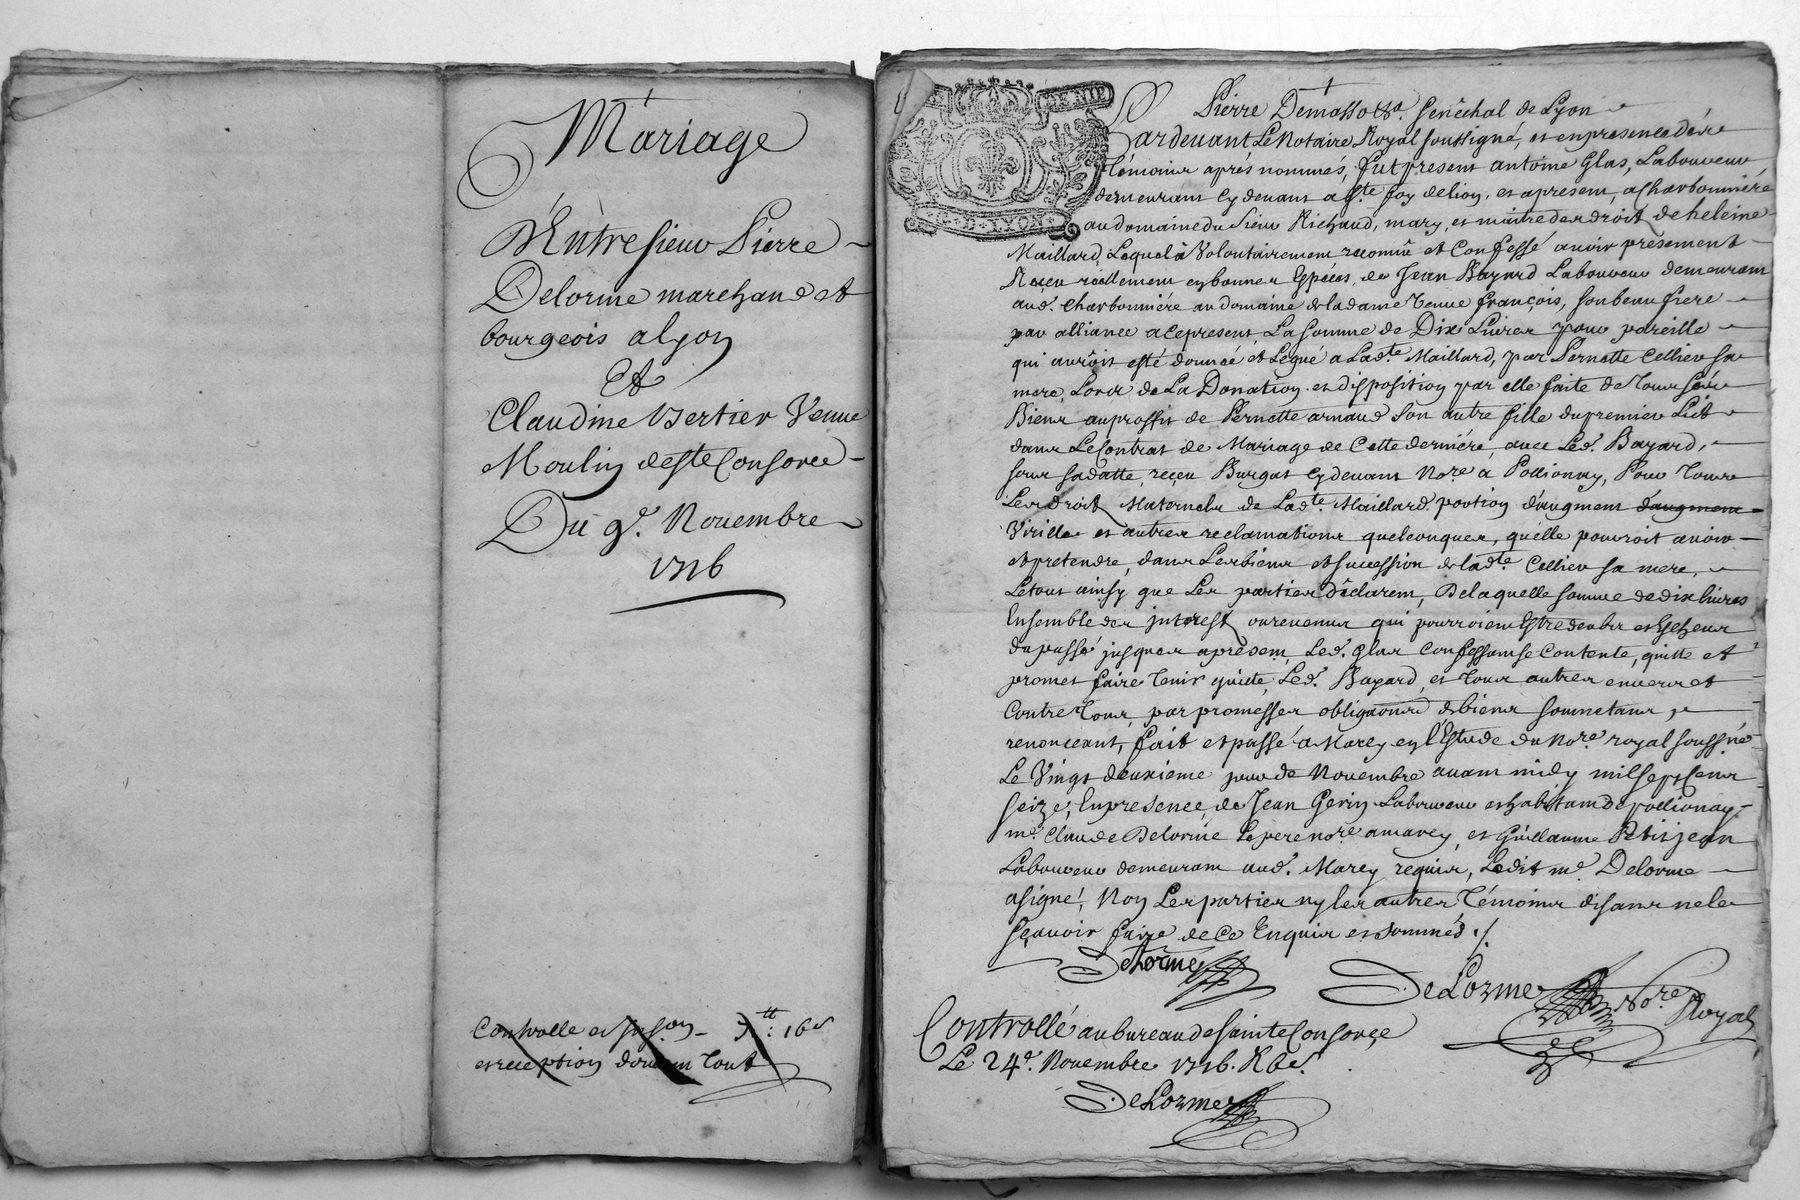 Mariage
Entre sieur Pierre
Delorme marchand et
bourgeois a lyon
Et
Claudine Bertier Veuve
Moulin de ste Consorce
Du 9e. Novembre
1716
Controlle et Insôn 3tt: 16s
et reception
Pierre Demasso &a. senêchal de Lyon
Pardevant Le Notaire Royal soussigné, et en presence des
témoins aprés nommés, fut present antoine Glas, Laboureur
demeurant cy devant a ste. foy de lion, et a present, a charbonniére
au domaine du sieur Richaud, mary, et maitre des droits de heleine
Maillard, Lequel à Volontairement reconnû et Confessé avoir présement
Receu réellement en bonnes Espéces, de Jean Bayard Laboureur demeurant
aud. charbonniére au domaine de la dame veuve françois, son beau frere
par alliance a ce present, La somme de Dix Livres pour pareille
qui auroit esté donneé et Legué a Lad.te Maillard, par Pernette Cellier sa
mere, Lors de La Donation et disposition par elle faite de tous ses
Biens au proffit de Pernette arnaud son autre fille du premier Lict
dans Le Contrat de Mariage de Cette derniére, avec Led. Bayard,
sous sa datte, reçeu Burgat cy devant No.re a Pollionay, Pour tous
Les droits Maternels de Lad.te Maillard portion d'augment d'augment
Virille et autres reclamations quelconques, qu'elle pouvoit avoir
et pretendre, dans Les biens et succession de lad.te Cellier sa mere,
Le tout ainsy que Les parties déclarent, De laquelle somme de dix livres
Ensemble des jnterests ou revenus qui pourroient Estre deubs et Escheus
du passé jusques a présent, Led. Glas Confessant se Contente, quitte et
promet faire tenir quitte, Led. Bayard, et tous autres envers et
Contre tous, par promesses obligaôns de biens soumetans,
renonceant, fait et passé a Marcy en l'Estude du No.re royal souss.né
Le Vingt deuxieme jour de Novembre avant midy mil sept Cens
seize, En presence, de Jean Gerin Laboureur et habitant de pollionay,
me. Claude Delorme Le pere no.re a marcy, et Guillaume Petitjean
Laboureur demeurant aud. Marcy requis, Ledit me. Delorme
a signé, Non Les parties ny les autres témoins disans ne le
sçavoir faire de ce Enquis et sommés ./.
DeLorme
DeLorme No.re Royal
Controllé au bureau de sainte Consorçe
Le 24e. Novembre 1716.
DeLorme